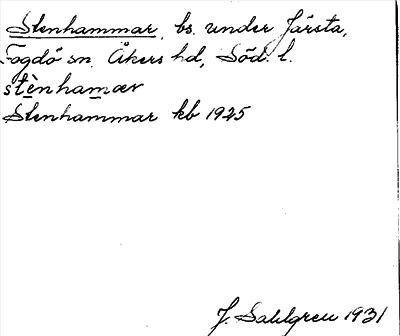 Stenhammar, bs. under Järsta,
Fogdö sn. Åkers hd, Söd. l.
stènhamar
Stenhammar kb 1925
J. Sahlgren 1931